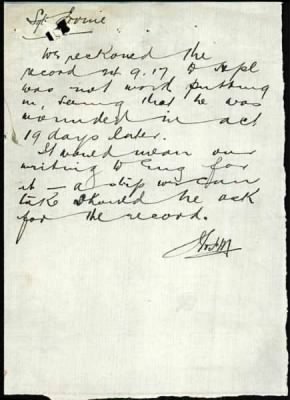 Sgt.
We reckoned the
record at 9.17 to
was not word putting
in, seeing that he was
wounded in act
19 days later.
It would mean our
writing to Eng for
it – a step we can
take should he ask
for the record.